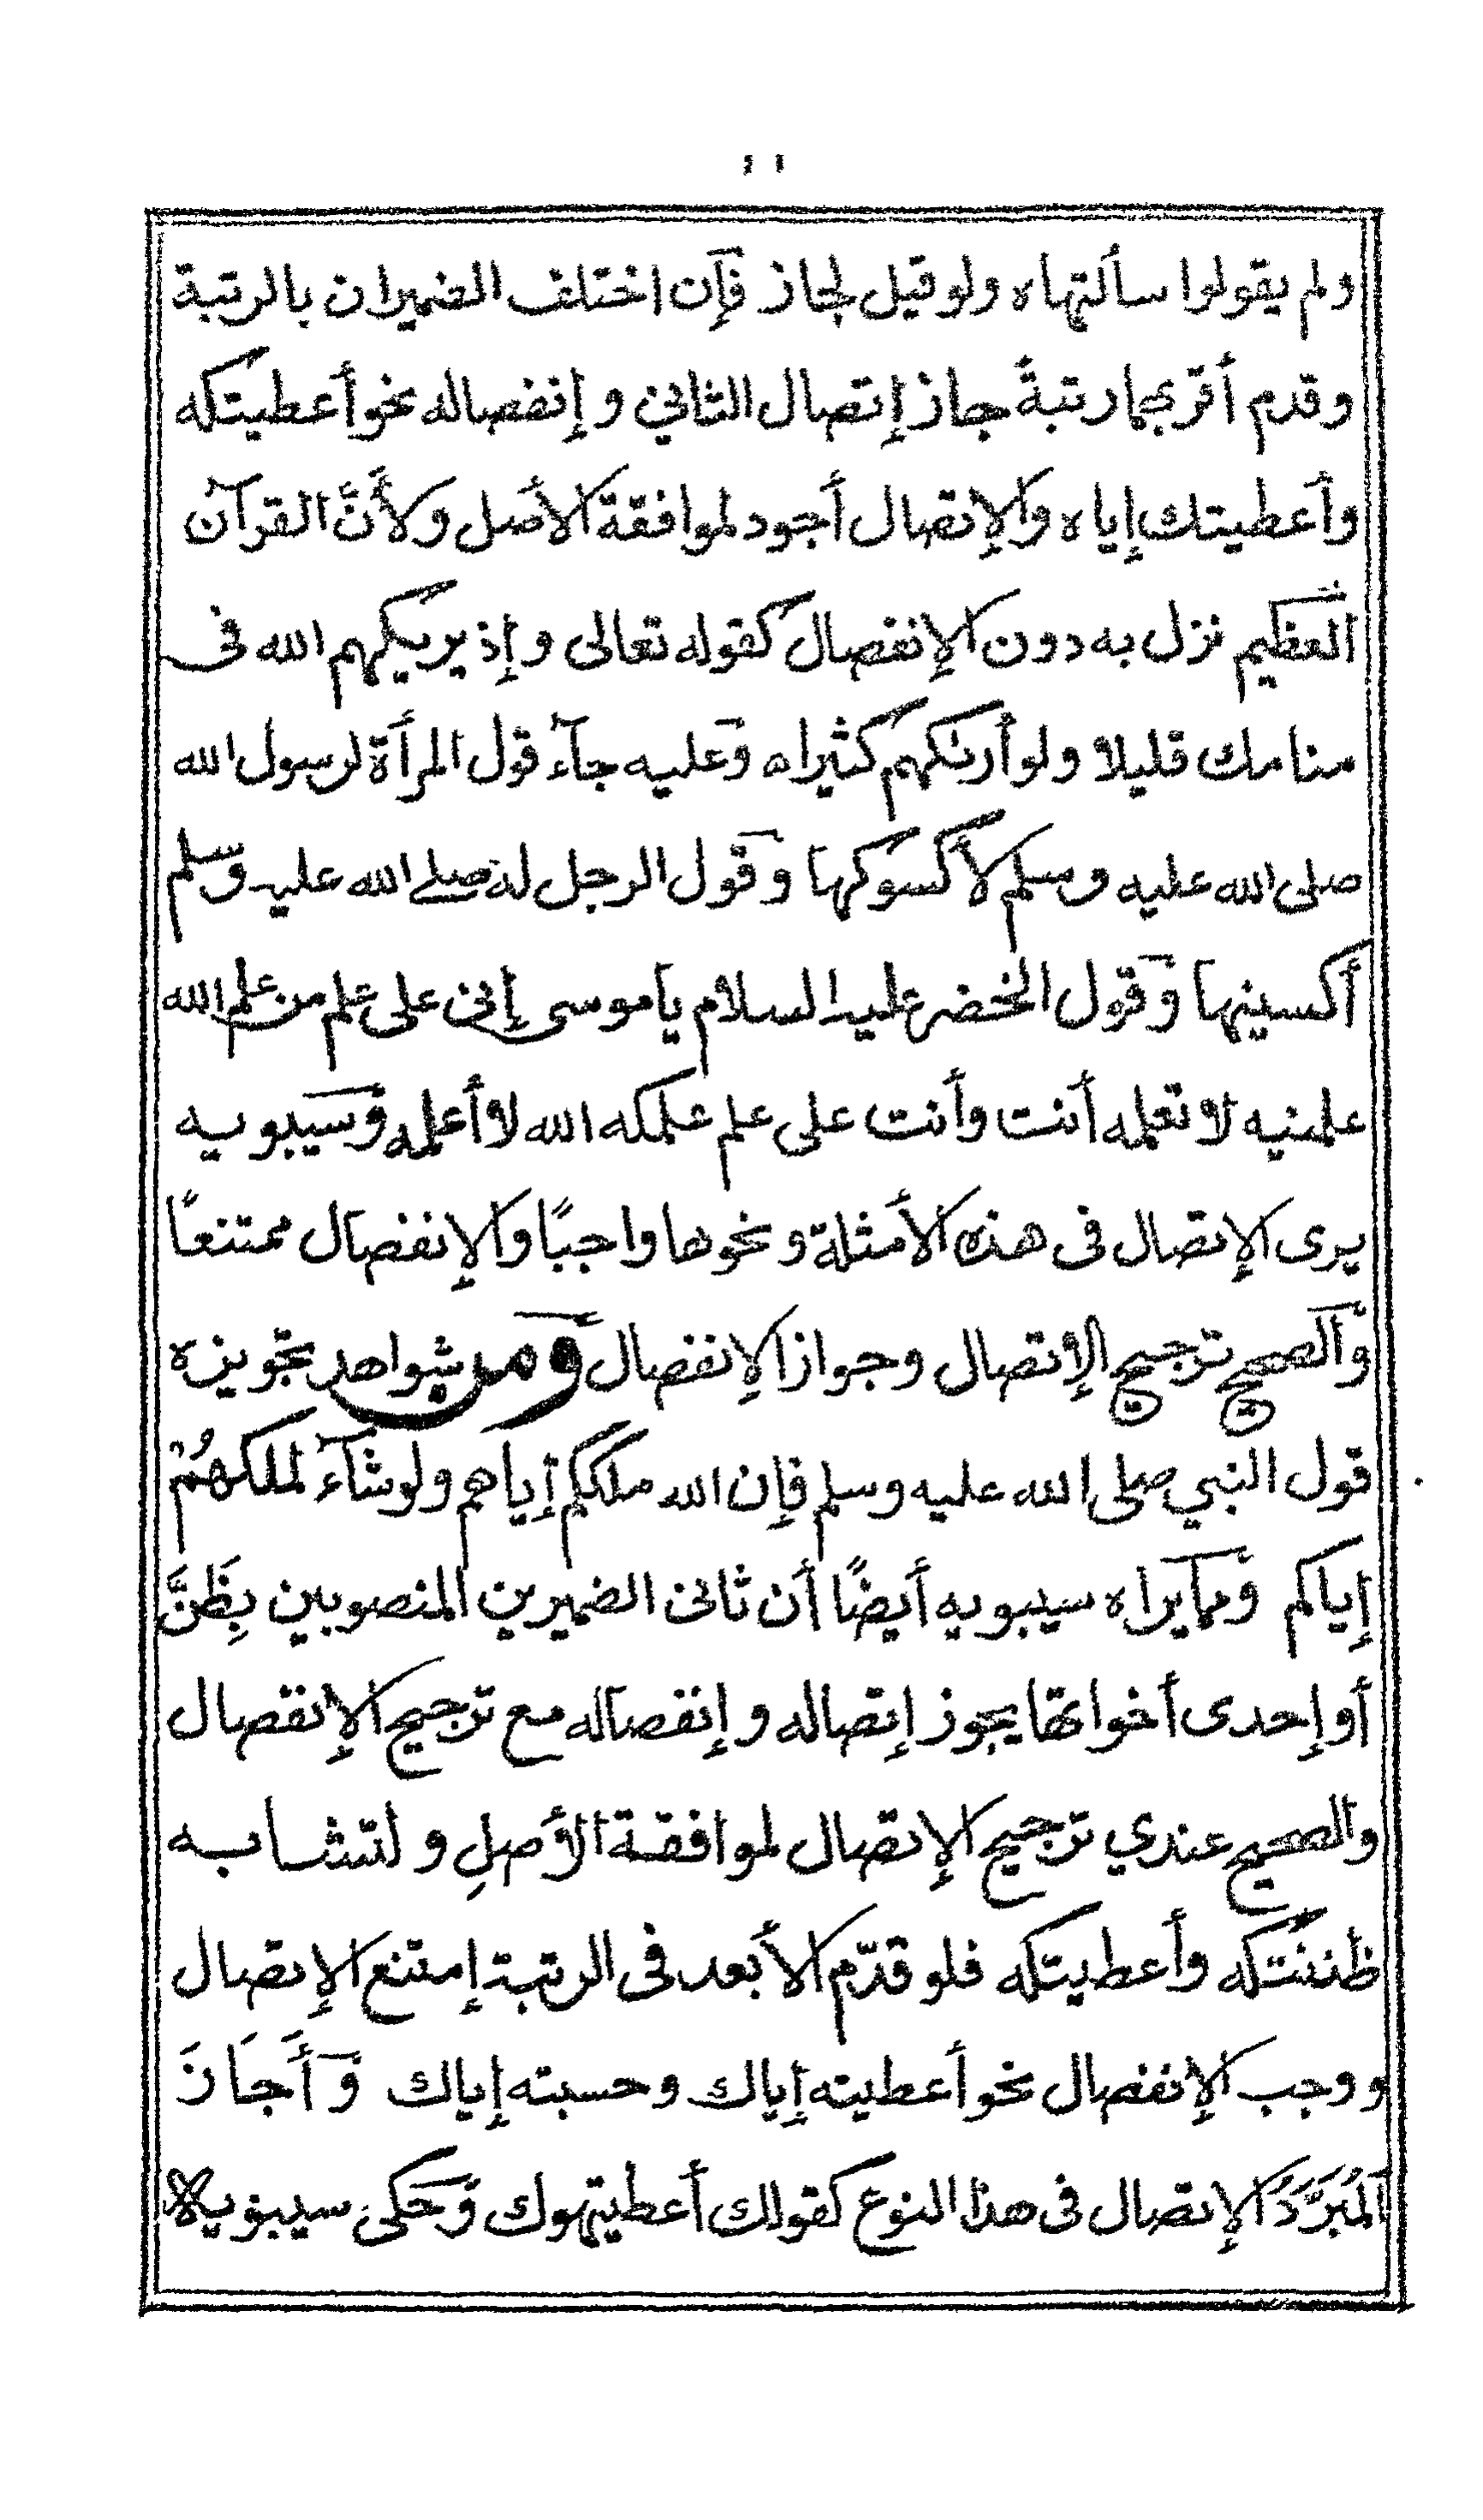 ولم يقولوا سألتهاه ولو قيل لجاز فإن اختلف الضميران بالرتبة
وقدم أقربهما رتبةً جاز إتصال الثاني وإنفصاله نحو أعطيتكه
وأعطيتك إياه والإتصال أجود لموافقة الأصل ولأنَّ القرآن
العظيم نزل به دون الإنفصال كقوله تعالى وإذ يريكهم الله فى
منامك قليلا ولو أركهم كثيراه وعليه جآء قول المرأة لرسول الله
صلى الله عليه وسلم لأكسوكها وقول الرجل له صلى الله عليه وسلم
أكسينها وقول الخضر عليه السلام يا موسى إنى على علم من علم الله
علمنيه لا تعلمه أنت وأنت على علم علمكه الله لا أعلمه وسيبويه
يرى الإتصال فى هذه الأمثلة ونحوها واجبًا والإنفصال ممتنعًا
والصحيح ترجيح الإتصال وجواز الإنفصال ومن شواهد تجويزه
قول النبي صلى الله عليه وسلم فإن الله ملككم إياهم ولو شآء لملكهُمْ
إياكم ومما يراه سيبويه أيضًا أن ثانى الضميرين المنصوبين بِظَنَّ
أو إحدى أخواتها يجوز إتصاله وإنفصاله مع ترجيح الإنفصال
والصحيح عندي ترجيح الإتصال لموافقة الأصلِ ولتشابه
ظننتكه وأعطيتكه فلو قدّم الأبعد فى الرتبة إمتنع الإتصال
ووجب الإنفصال نحو أعطيته إياك وحسبته إياك وَأَجَازَ
المُبَرَّدُ الإتصال فى هذا النوع كقولك أعطيتهوك وَحكى سيبويه